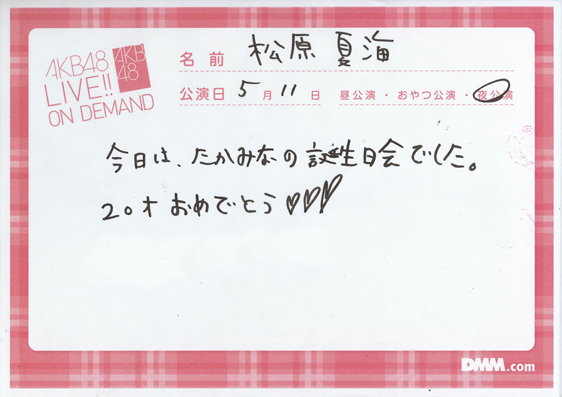 AKB48
LIVE!!
ON DEMAND
AKB
48
名前 松原夏海
公演日 5月11日 昼公演・おやつ公演・夜公演
今日は、たかみなの誕生日会でした。
20才おめでとう♡♡♡
DMM.com